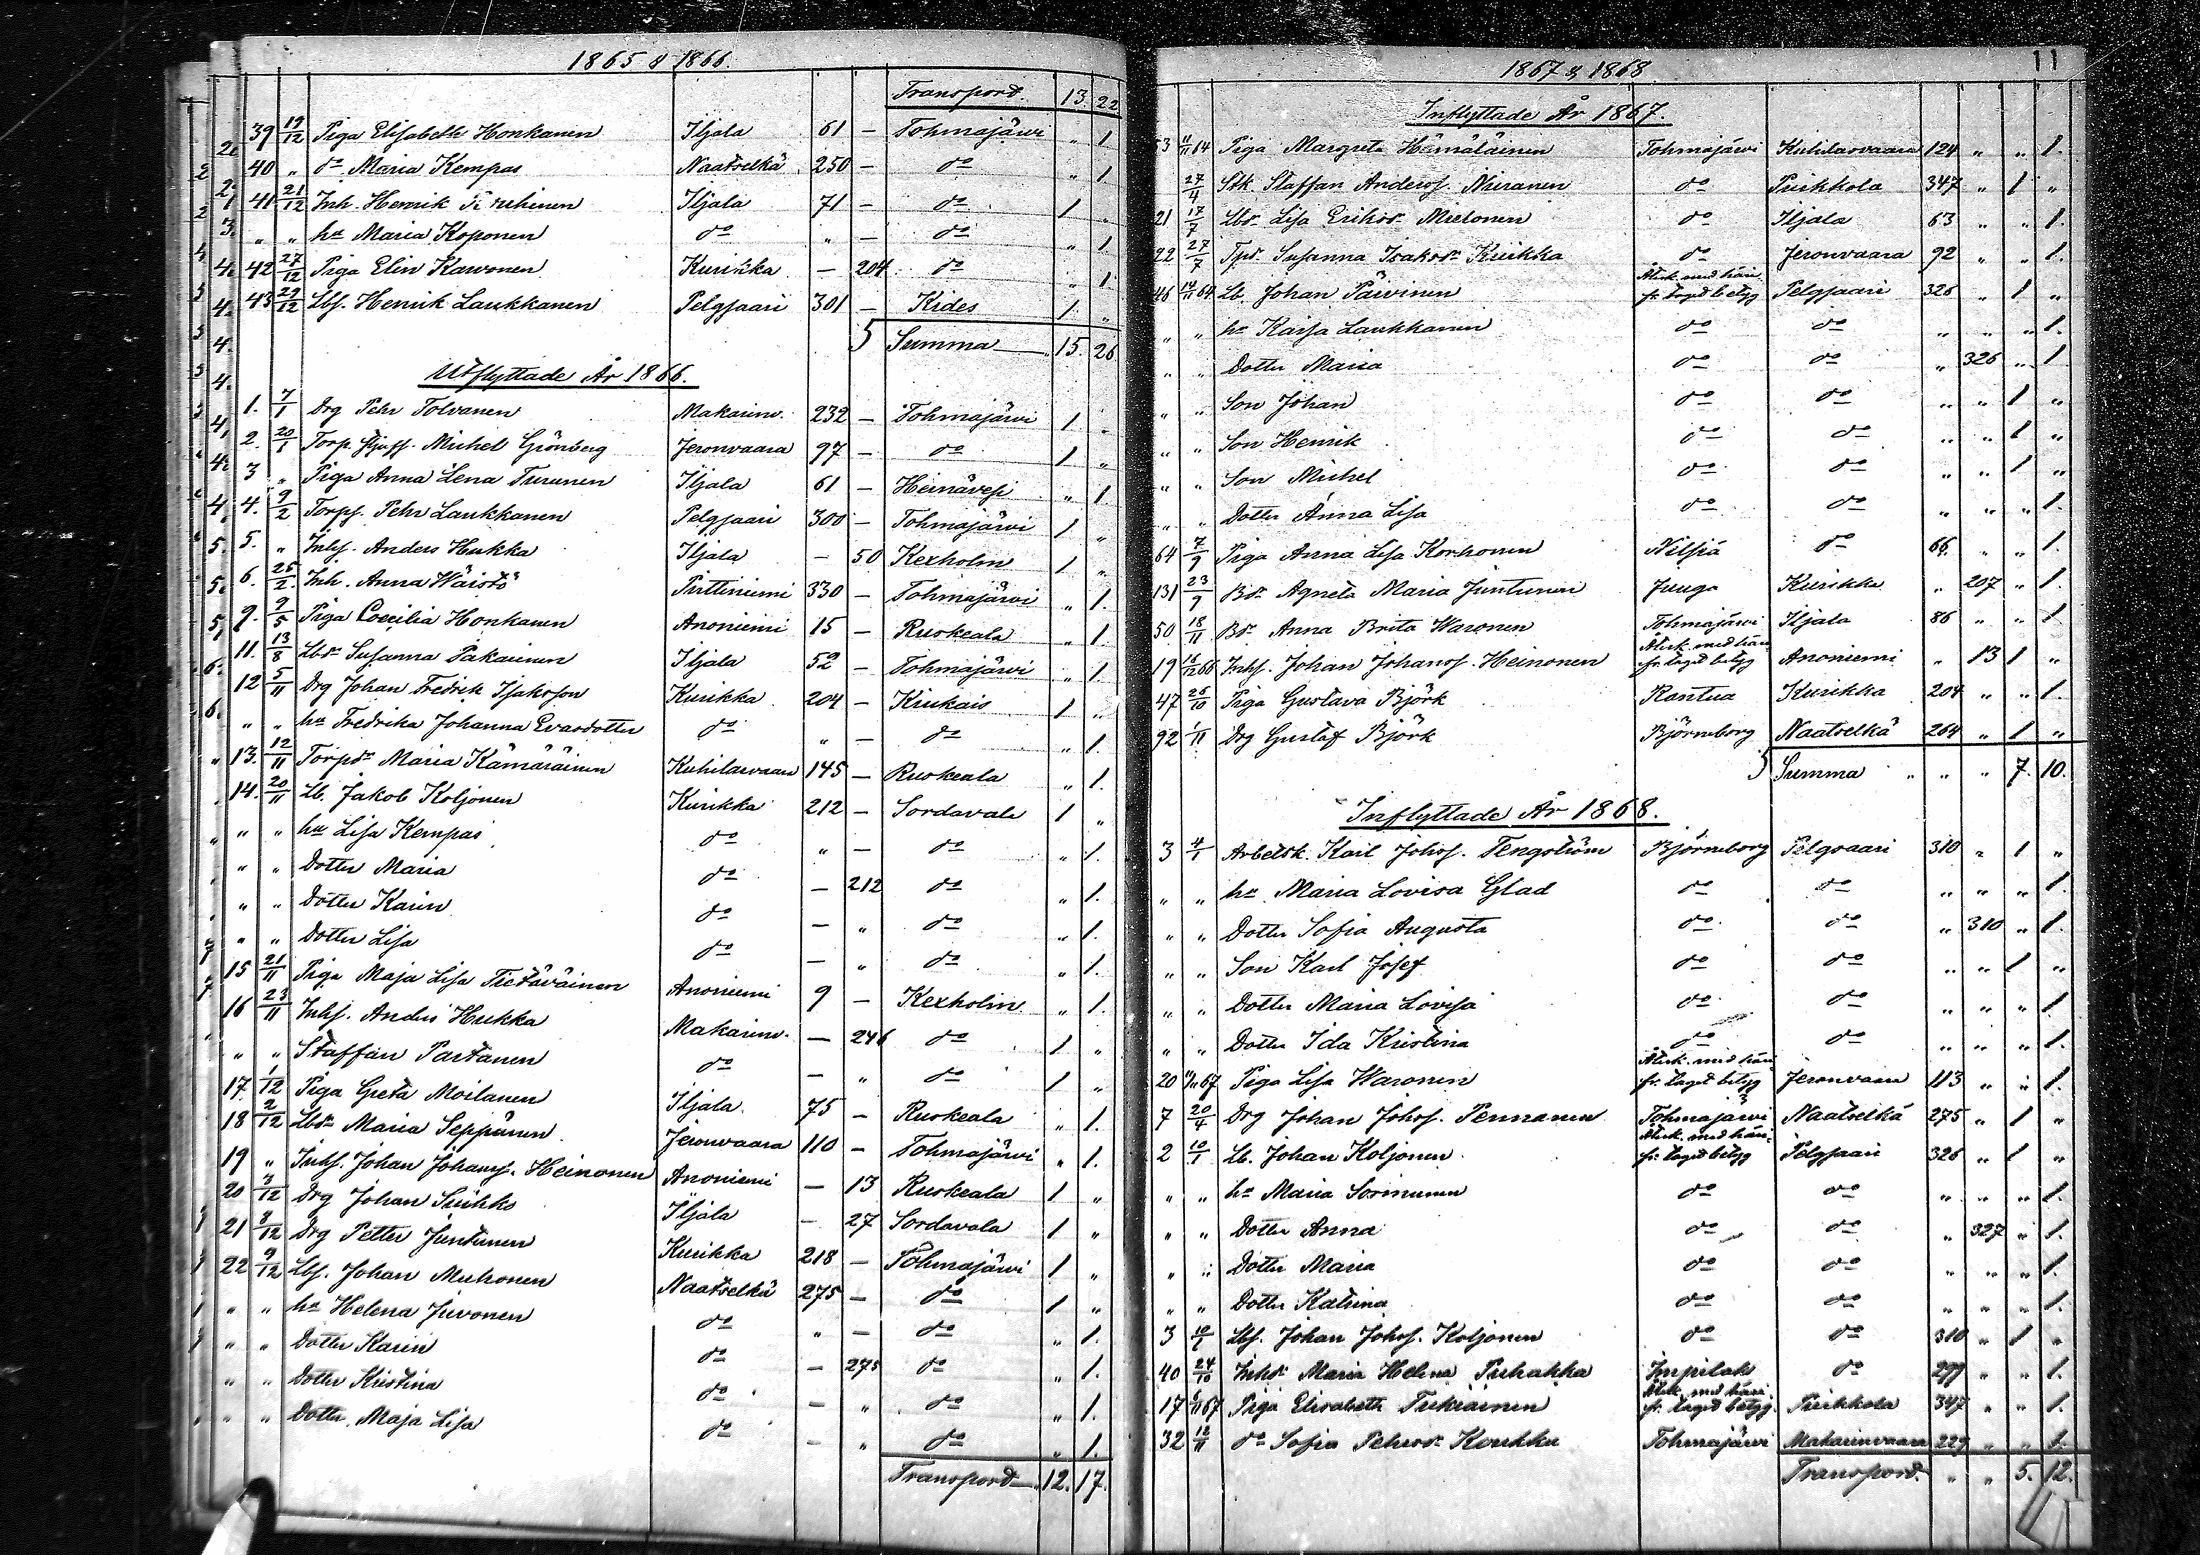 1865 & 1866.
Transpord. 13. 22
39 19/12 Piga Elisabeth Honkanen Iljala 61 — Tohmajärvi „ 1
40 „ do Maria Kempas Naatselkä 250 — do „ 1.
41 21/12 Inh. Henrik Iljala 71 — do 1 „
„ „ hu Maria Koponen do „ — do „ 1
42 27/12 Piga Elin Karvonen Kurikka — 204 do „ 1
43 29/12 Lbs. Henrik Laukkanen Pelgjaari 301 — Kides 1 „
Summa 15. 26
Utflyttade År 1866.
1. 7/1 Drg Pehr Tolvanen Makarinv. 232 — Tohmajärvi 1 „
2. 20/1 Torp. Michel Grönberg Jeronvaara 97 — do 1 „
3 „ Piga Anna Lena Turunen Iljala 61 — Heinävesi „ 1
4. 9/2 Torps. Pehr Laukkanen Pelgjaari 300 — Tohmajärvi 1 „
5. „ Inhs. Anders Hukka Iljala — 50 Kexholm 1 „
6. 25/2 Inh. Anna Wäistö Puttiniemi 330 — Tohmajärvi „ 1.
9. 9/5 Piga Coecilia Honkanen Anoniemi 15 — Ruskeala „ 1.
11. 13/8 Lbdr Susanna Pakarinen Iljala 52 — Tohmajärvi „ 1
12 5/11 Drg Johan Fredrik Isaksson Kurikka 204 — Kiukais 1 „
„ „ hu Fredrika Johanna Evasdotter do „ — do „ 1.
13. 12/11 Torpdr Maria Kämäräinen Kuhilasvaara 145 — Ruskeala „ 1.
14. 20/11 Lb. Jakob Koljonen Kurikka 212 — Sordavala 1 „
„ „ hu Lisa Kempas do „ — do „ 1.
„ „ Dotter Maria do — 212 do „ 1.
„ „ Dotter Karin do — „ do „ 1.
„ „ Dotter Lisa do — „ do „ 1.
15 21/11 Piga Maja Lisa Tietäväinen Anoniemi 9 — Kexholm „ 1.
16 23/11 Inhs. Anders Hukka Makarinv. — 246 do 1 „
„ „ Staffan Partanen do — „ do 1 „
17. 1/12 Piga Greta Moilanen Iljala 75 — Ruskeala „ 1.
18 2/12 Lbdr Maria Seppänen Jeronvaara 110 — Tohmajärvi „ 1.
19 „ Inhs. Johan Johans. Heinonen Anoniemi — 13 Ruskeala 1 „
20 3/12 Drg Johan Suihko Iljala — 27 Sordavala 1 „
21 8/12 Drg Petter Juntunen Kurikka 218 — Tohmajärvi 1 „
22 9/12 Lbs. Johan Muhonen Naatselkä 275 — do 1 „
„ „ hu Helena Juvonen do „ — do „ 1.
„ „ Dotter Karin do — 275 do „ 1.
„ „ Dotter Kristina do — „ do „ 1.
„ „ Dotter Maja Lisa do — „ do „ 1.
Transpord 12. 17.
1867 & 1868 11
Inflyttade År 1867.
53 11/11 64 Piga Margreta Hämäläinen Tohmajärvi Kuhilasvaara 124 „ „ 1.
27/4 Stk. Staffan Anderss. Niiranen do Puikkola 347 „ 1 „
21 17/7 Lbdr Lisa Eriksdr Mielonen do Iljala 63 „ „ 1.
22 27/7 Tpdr Susanna Isaksdr Kuikka do Jeronvaara 92 „ „ 1.
46 14/11 64 Lb. Johan Päivinen Återk. med häri fr. taget betyg Pelgjaari 326 „ 1 „
„ „ hu Kaisa Laukkanen do do „ „ „ 1.
„ „ Dotter Maria do do „ 326 „ 1
„ „ Son Johan do do „ „ 1 „
„ „ Son Henrik do do „ „ 1 „
„ „ Son Michel do do „ „ 1 „
„ „ Dotter Anna Lisa do do „ „ „ 1.
64 7/9 Piga Anna Lisa Korhonen Nilsiä do 66. „ „ 1.
131 23/9 Bdr Agneta Maria Juntunen Juuga Kurikka „ 207 „ 1.
50 18/11 Bdr Anna Brita Waronen Tohmajärvi Iljala 86 „ „ 1
19 15/12 66 Inhs. Johan Johanss. Heinonen Återk. med häri fr. taget betyg Anoniemi „ 13 1 „
47 25/10 Piga Gustava Björk Kantua Kurikka 204 „ „ 1.
92 1/11 Drg Gustaf Björk Björneborg Naatselkä 264 „ 1 „
Summa „ „ „ 7. 10.
Inflyttade År 1868.
3 4/1 Arbetsk. Karl Johss. Tengström Björneborg Pelgjaari 310 „ 1 „
„ „ hu Maria Lovisa Glad do do „ „ „ 1.
„ „ Dotter Sofia Augusta do do „ 310 „ 1.
„ „ Son Karl Josef do do „ „ 1 „
„ „ Dotter Maria Lovisa do do „ „ „ 1
„ „ Dotter Ida Kristina do do „ „ „ 1.
20 67 Piga Lisa Waronen Återk. med häri fr. taget betyg Jeronvaara 113 „ „ 1.
7 20/4 Drg Johan Johss. Pennanen Tohmajärvi Naatselkä 275 „ 1 „
2 10/1 Lb. Johan Koljonen Återk. med häri fr. taget betyg Pelgjaari 326 „ 1 „
„ „ hu Maria Sormunen do do „ „ „ 1.
„ „ Dotter Anna do do „ 327 „ 1.
„ „ Dotter Maria do do „ „ „ 1.
„ „ Dotter Katrina do do „ „ „ 1.
3 10/1 Lbs. Johan Johss. Koljonen do do 310 „ 1 „
40 24/10 Inhdr Maria Helena Puhakka Impilaks do 299 „ „ 1.
17 67 Piga Elisabeth Tukiainen Återk. med häri fr. taget betyg Puikkola 347 „ „ 1.
32 12/11 do Sofia Pehrsdr Kuikka Tohmajärvi Makarinvaara 229 „ „ 1.
Transpord. „ „ 5. 12.